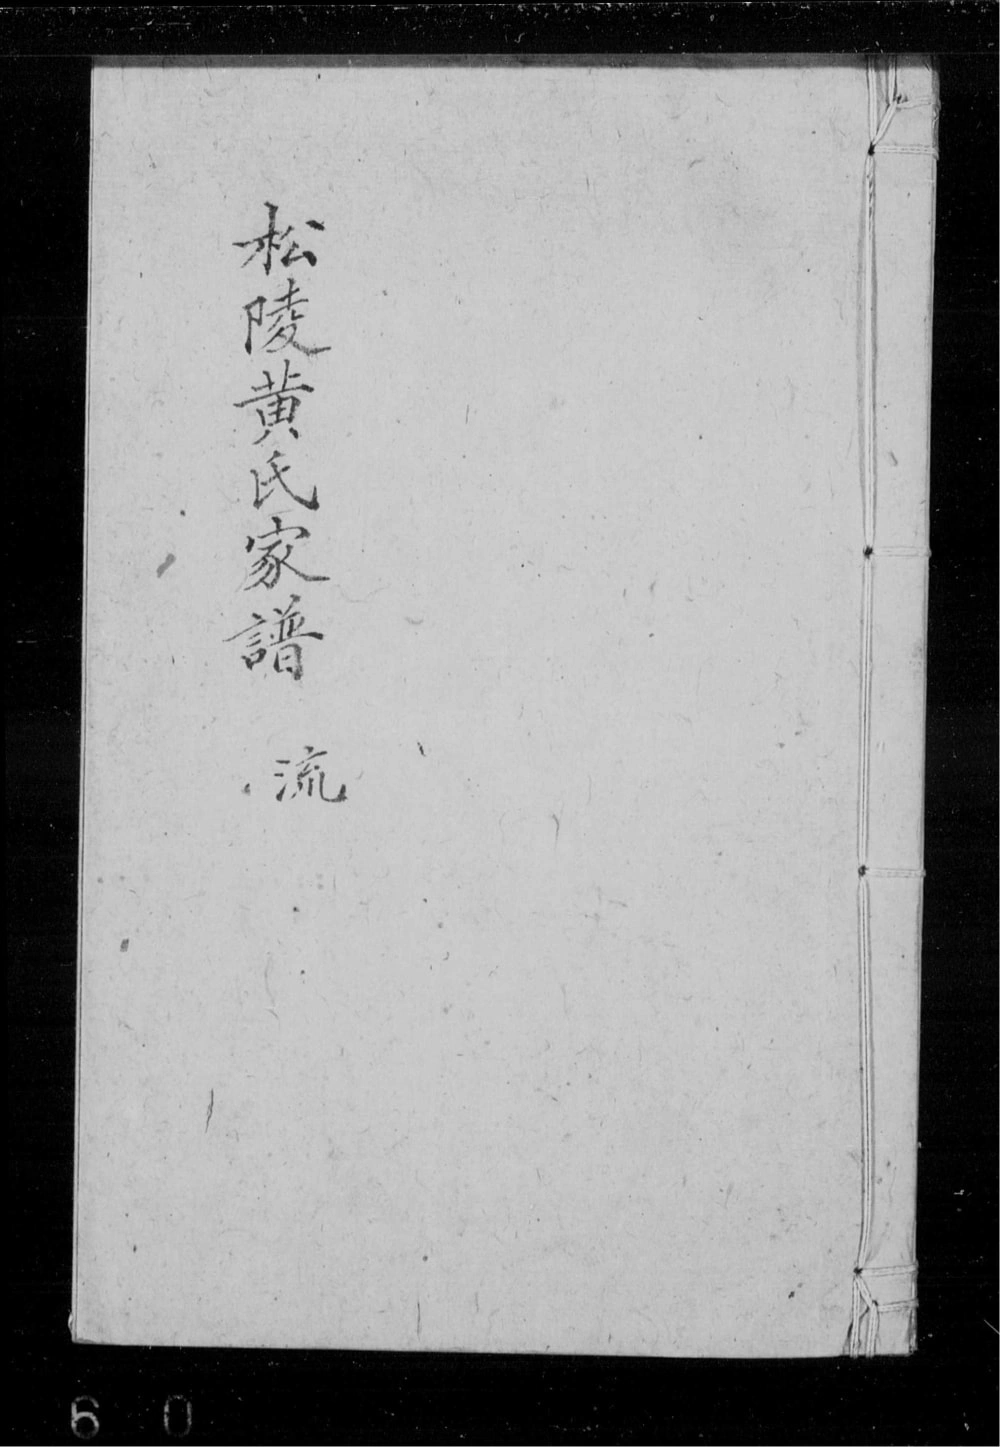 松陵黄氏家譜 流
6 0